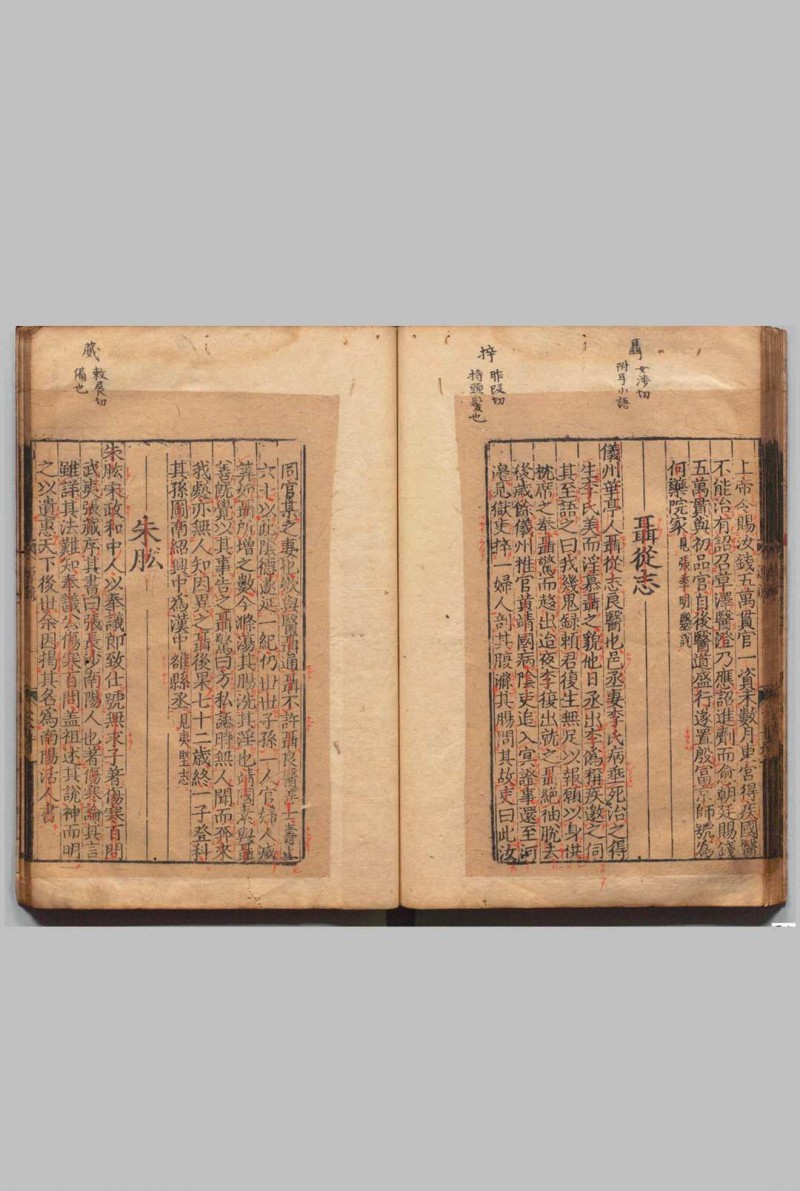 聶 女涉切
附耳小語
捽 昨段切
持頭髮也
上帝令賜汝錢五萬貫官一資未數月東宮得疾國醫
不能治有詔召草澤醫澄乃應詔進劑而愈朝廷賜錢
五萬貫與初品官自後醫道盛行遂置殷富京師號為
何藥院家見張季明醫說
聶從志
儀州華亭人聶從志良醫也邑丞妻李氏病垂死治之得
生李氏美而淫慕聶之貌他日丞出李偽稱疾邀之伺
其至語之曰我幾鬼録賴君復生無足以報願以身供
枕席之奉聶驚而趍出迨夜李復出就之聶絕袖脫去
後歲餘儀州推官黃靖國病陰吏追入冥證事還至河
邊見獄吏捽一婦人剖其腹濯其腸問其故吏曰此汝
蕆 敕展切
備也
同官某之妻也欲與醫聶通聶不許聶良醫畢士壽止
六十以此陰德遂延一紀仍世世子孫一人官婦人減
筭如聶所增之數今滌蕩其腸洗其淫也靖國素與聶
善既覺以其事告之聶驚曰方私語時無人聞而奔來
我處亦無人知因異之聶後果七十二歲終一子登科
其孫圖南紹興中為漢中雒縣丞見夷堅志
朱肱
朱肱宋政和中人以奉議郎致仕號無求子著傷寒百問
武夷張蕆序其書曰張長沙南陽人也著傷寒論其言
雖詳其法難知奉議公傷寒百問蓋祖述其說神而明
之以遺惠天下後世余因揭其名為南陽活人書